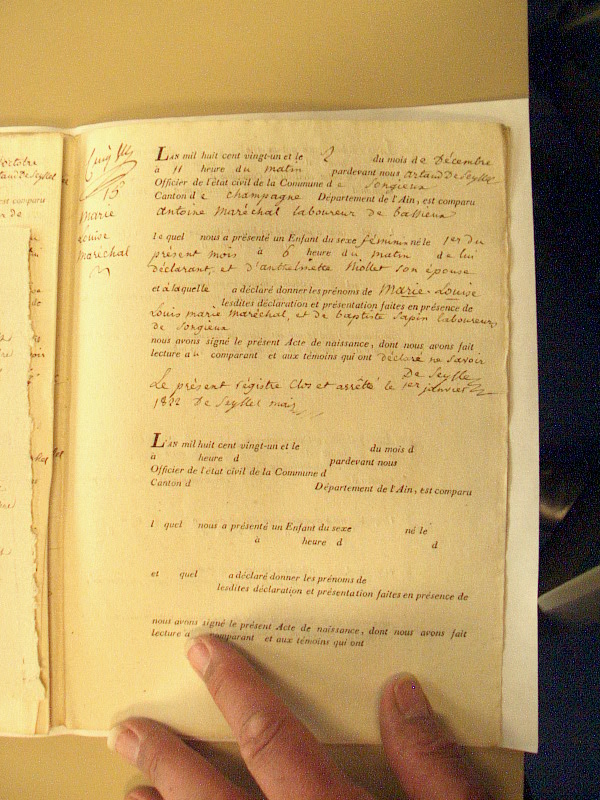 octobre
taud de Seyssel
est comparu
15e
Marie
Louise
maréchal
LAN mil huit cent vingt-un et le 2 du mois de Décembre
à 11 heure du matin pardevant nous artaud de Seyssel
Officier de l'état civil de la Commune de Songieux
Canton de Champagne Département de l'Ain, est comparu
antoine Maréchal laboureur de bassieux
lequel nous a présenté un Enfant du sexe féminin né le 1er du
présent mois à 6 heure du matin de lui
déclarant, et d'anthelmette Riollet son épouse
et à laquelle a déclaré donner les prénoms de Marie-Louise
lesdites déclaration et présentation faites en présence de
Louis marie Maréchal, et de baptiste Sapin laboureurs
de Songieux
nous avons signé le présent Acte de naissance, dont nous avons fait
lecture au comparant et aux témoins qui ont déclaré ne savoir
De Seyssel
Le présent régistre Clos et arrêté le 1er janvier
1822 De Seyssel maire
LAN mil huit cent vingt-un et le du mois d
à heure d pardevant nous
Officier de l'état civil de la Commune d
Canton d Département de l'Ain, est comparu
l quel nous a présenté un Enfant du sexe né le
à heure d d
et quel a déclaré donner les prénoms de
lesdites déclaration et présentation faites en présence de
nous avons signé le présent Acte de naissance, dont nous avons fait
lecture a comparant et aux témoins qui ont